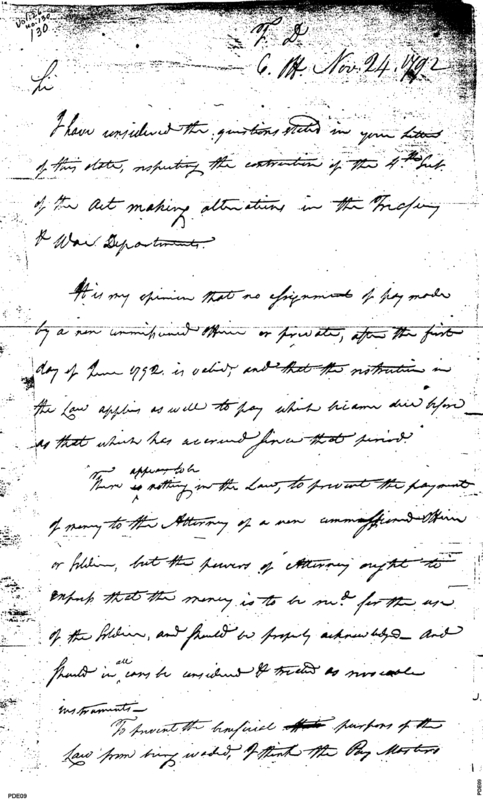 Vol 126
no. 130
130
T. D
C. O. Nov. 24. 1792
Sir
I have considered the questions stated in your Letter
of this date, respecting the construction of the 4th Sect.
of the Act making alterations in the Treasury
& War Departments.
It is my opinion that no assignment of pay made
by a non commissioned Officer or private, after the first
day of June 1792. is valid, and that the restriction in
the Law applies as well to pay which became due before
as that which has accrued since that period
appears to be
There is nothing in the Law, to prevent the payment
of money to the Attorney of a non commissioned Officer
or Soldier, but the powers of Attorney ought to
express that the money is to be recd. for the use
of the Soldier, and should be properly acknowledged and
all
should in cases be considered & treated as revocable
instruments
To prevent the beneficial purposes of the
Law from being evaded, I think the Pay Masters
PDE09
PDE09